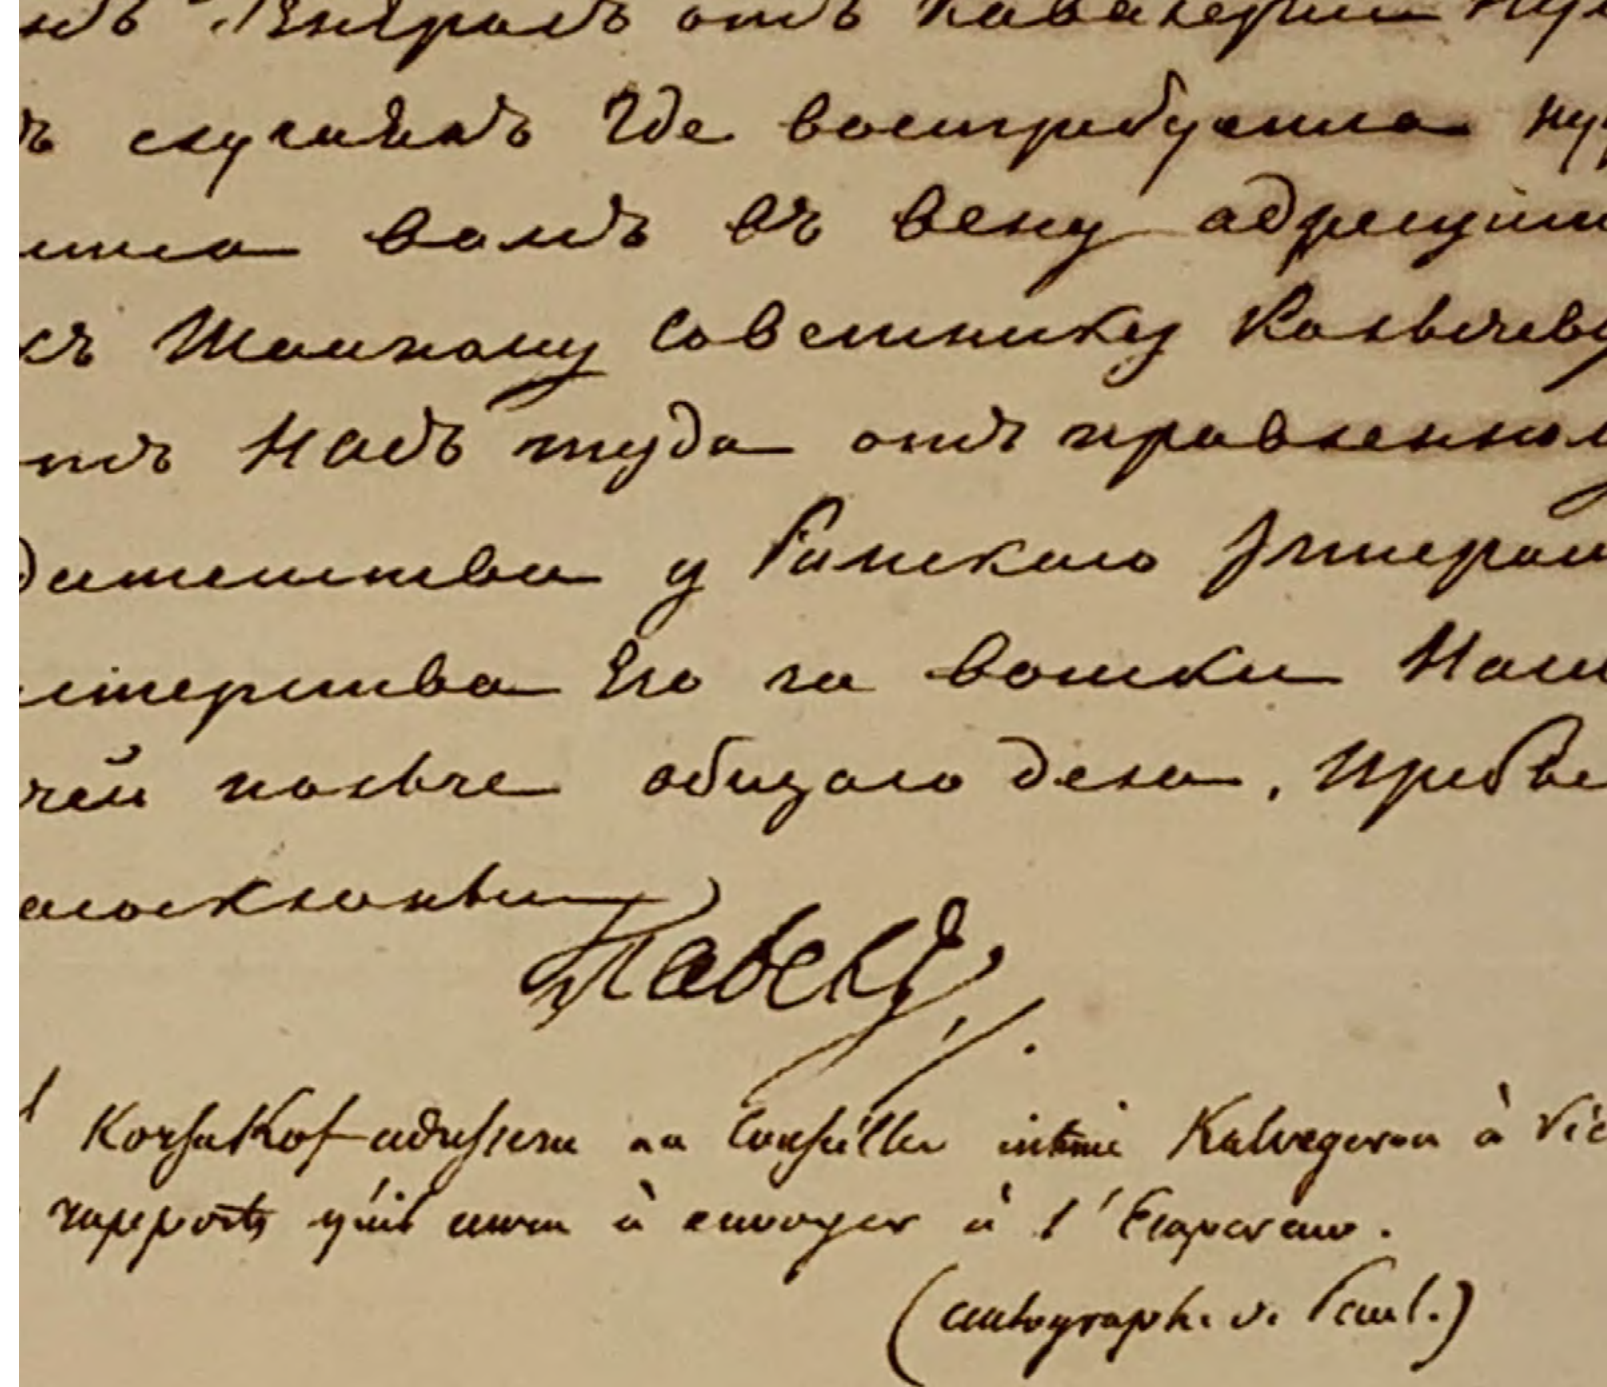 Генералъ отъ Кавалерии
случаяхъ где востребуетца
вамъ въ вену адресуйте
къ Тайному Советнику Колычеву
надъ туда отъ правленнаго
дательства у Римскаго Импера
истерства Его за войски Наши
чей пользе общаго дела. Пребы
агосклонны
Павелъ
Korsakof adressera au Conseiller intime Kalvegevou à Vie
rapports qu'il aura à envoyer à l'Empereur.
(autograph. v. Paul.)